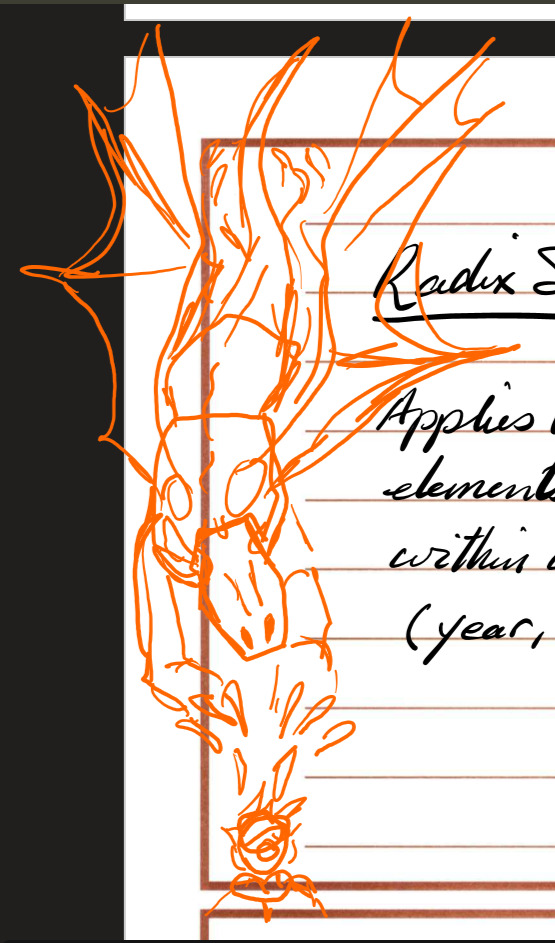 Radix S
Applies
elements
within
(year,